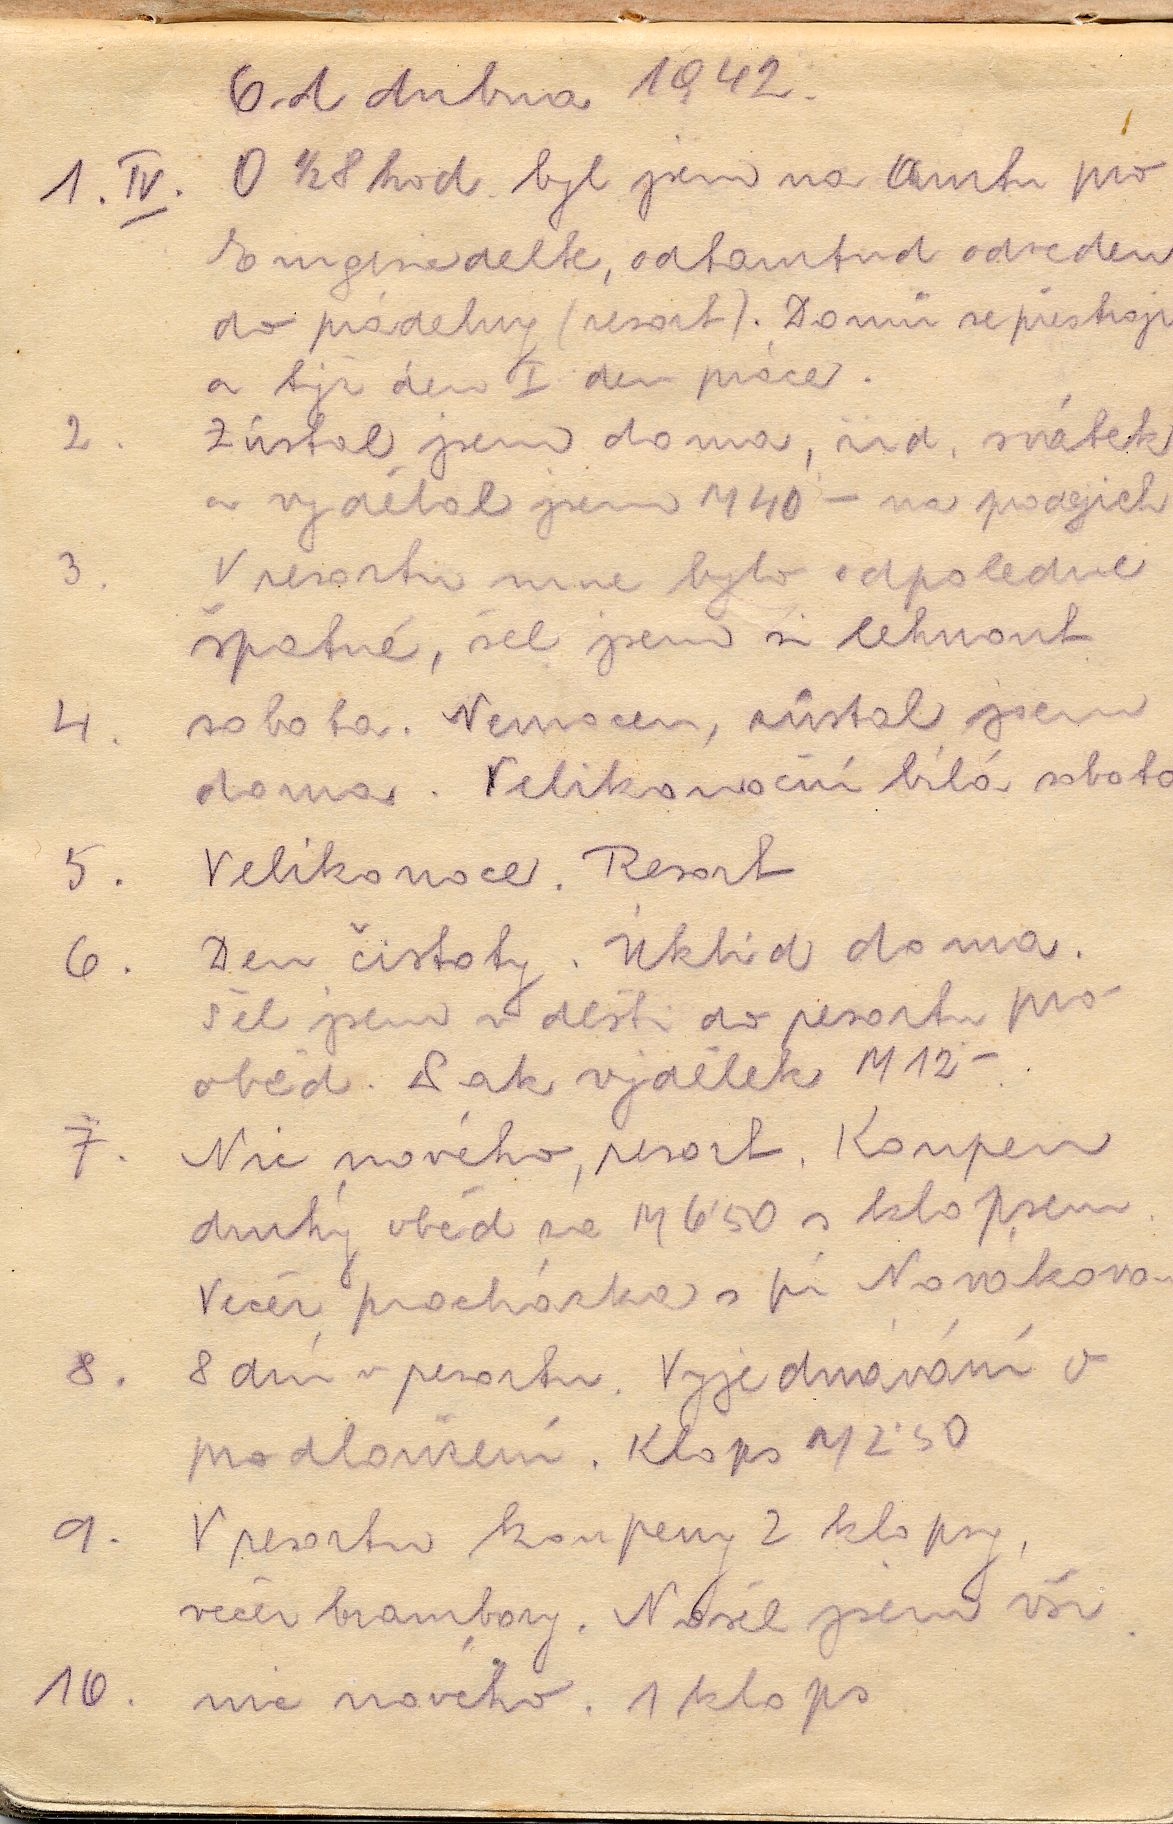 Od dubna 1942.
1. IV. O ½8 hod. byl jsem na Amtu pro
Eingesiedelte, odtamtud odveden
do prádelny (resort). Domů se přestroji
a týž den I den práce.
2. Zůstal jsem doma, žid. svátek
a vydělal jsem M 40 – na
3. V resortu mne bylo odpoledne
špatně, šel jsem si lehnout
4. sobota. Nemocen, zůstal jsem
doma. Velikonoční bílá sobota
5. Velikonoce. Resort
6. Den čistoty. Úklid doma.
Šel jsem v dešti do resortu pro
oběd. Sak výdělek M 12 –.
7. Nic nového, resort. Koupen
druhý oběd za M 6'50 s klopsem.
Večer procházka s pí Novákovou
8. 8 dní v resortu. Vyjednávání o
prodloužení. Klops M 2'50
9. V resortu koupeny 2 klopsy,
večer brambory. Našel jsem vši.
10. nic nového. 1 klops